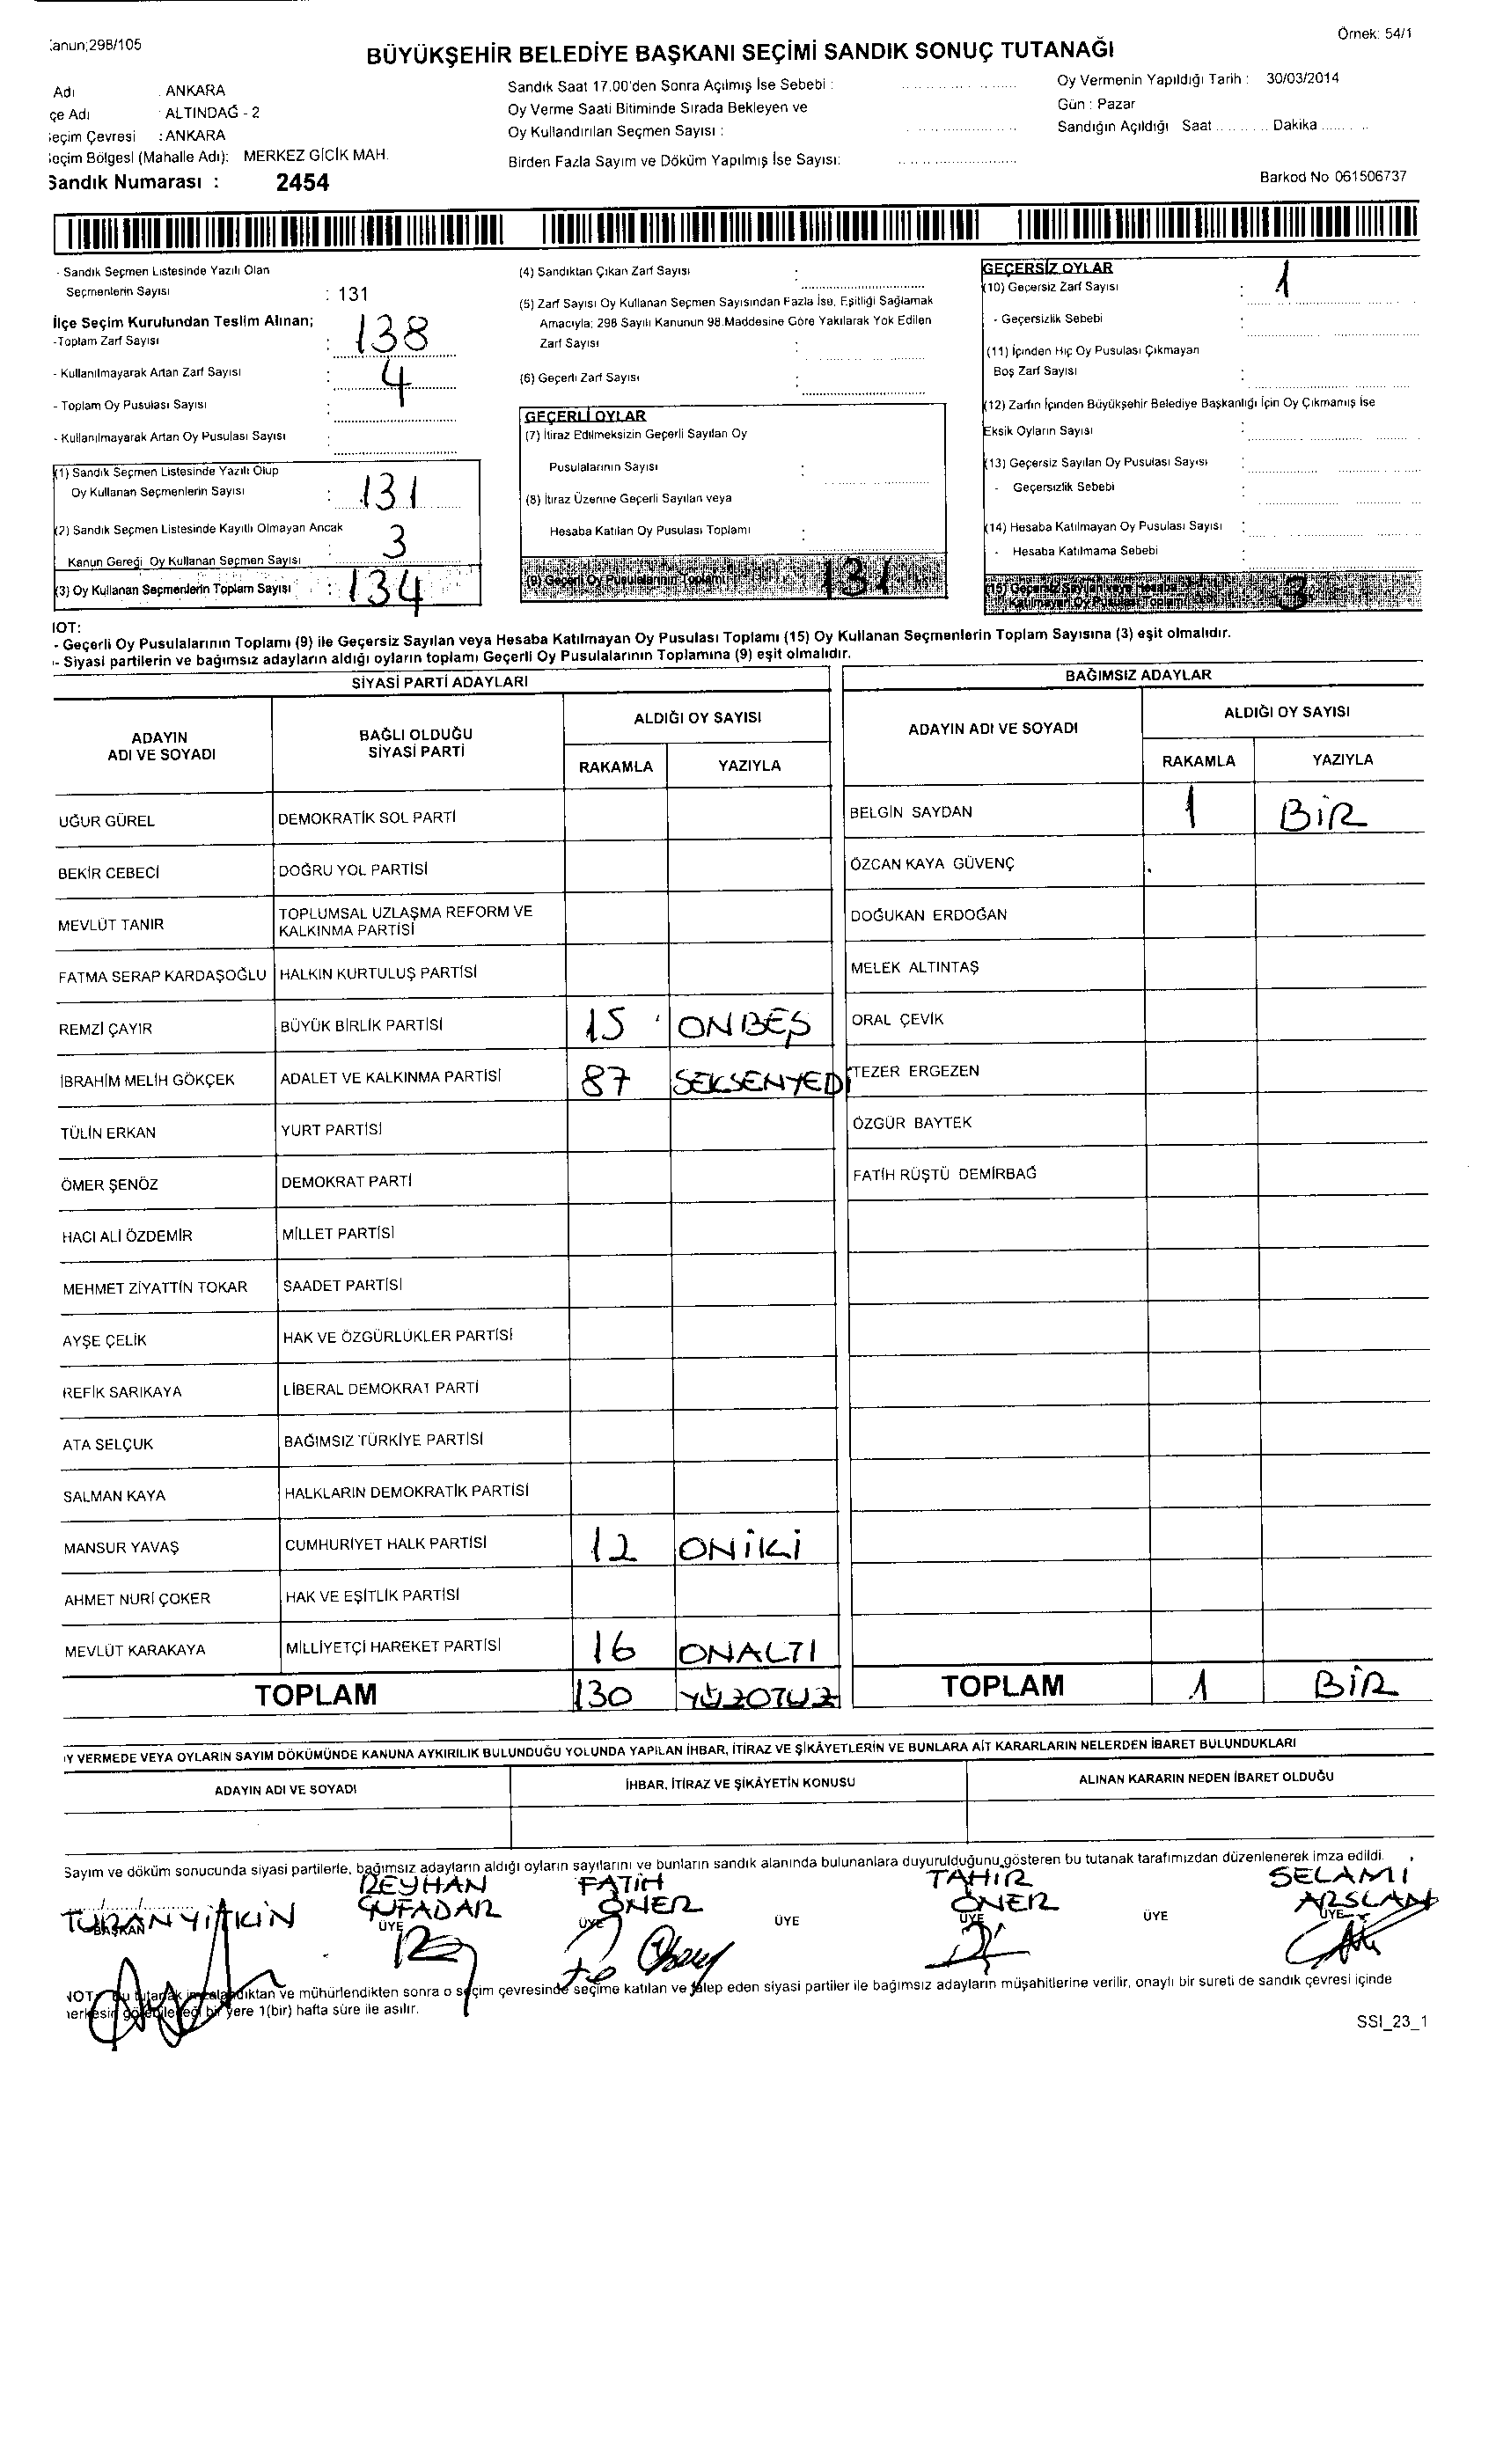 Kanun;298/105
Örnek: 54/1
BÜYÜKŞEHİR BELEDİYE BAŞKANI SEÇİMİ SANDIK SONUÇ TUTANAĞI
Adı : ANKARA
çe Adı : ALTINDAĞ - 2
eçim Çevresi : ANKARA
eçim Bölgesi (Mahalle Adı): MERKEZ GİCİK MAH.
Sandık Numarası : 2454
Sandık Saat 17.00'den Sonra Açılmış İse Sebebi :
Oy Verme Saati Bitiminde Sırada Bekleyen ve
Oy Kullandırılan Seçmen Sayısı :
Birden Fazla Sayım ve Döküm Yapılmış İse Sayısı:
Oy Vermenin Yapıldığı Tarih : 30/03/2014
Gün : Pazar
Sandığın Açıldığı Saat .......... Dakika ..........
Barkod No 061506737
- Sandık Seçmen Listesinde Yazılı Olan
Seçmenlerin Sayısı : 131
İlçe Seçim Kurulundan Teslim Alınan;
-Toplam Zarf Sayısı : 138
- Kullanılmayarak Artan Zarf Sayısı : 4
- Toplam Oy Pusulası Sayısı :
- Kullanılmayarak Artan Oy Pusulası Sayısı :
(1) Sandık Seçmen Listesinde Yazılı Olup
Oy Kullanan Seçmenlerin Sayısı : 131
(2) Sandık Seçmen Listesinde Kayıtlı Olmayan Ancak
Kanun Gereği Oy Kullanan Seçmen Sayısı : 3
(3) Oy Kullanan Seçmenlerin Toplam Sayısı : 134
(4) Sandıktan Çıkan Zarf Sayısı :
(5) Zarf Sayısı Oy Kullanan Seçmen Sayısından Fazla İse, Eşitliği Sağlamak
Amacıyla; 298 Sayılı Kanunun 98.Maddesine Göre Yakılarak Yok Edilen
Zarf Sayısı :
(6) Geçerli Zarf Sayısı :
GEÇERLİ OYLAR
(7) İtiraz Edilmeksizin Geçerli Sayılan Oy
Pusulalarının Sayısı :
(8) İtiraz Üzerine Geçerli Sayılan veya
Hesaba Katılan Oy Pusulası Toplamı :
(9) Geçerli Oy Pusulalarının Toplamı 131
GEÇERSİZ OYLAR
(10) Geçersiz Zarf Sayısı : 1
- Geçersizlik Sebebi :
(11) İçinden Hiç Oy Pusulası Çıkmayan
Boş Zarf Sayısı :
(12) Zarfın İçinden Büyükşehir Belediye Başkanlığı İçin Oy Çıkmamış İse
Eksik Oyların Sayısı :
(13) Geçersiz Sayılan Oy Pusulası Sayısı :
- Geçersizlik Sebebi :
(14) Hesaba Katılmayan Oy Pusulası Sayısı :
- Hesaba Katılmama Sebebi :
(15) Geçersiz Sayılan veya Hesaba
Katılmayan Oy Pusulası Toplamı 3
NOT:
- Geçerli Oy Pusulalarının Toplamı (9) ile Geçersiz Sayılan veya Hesaba Katılmayan Oy Pusulası Toplamı (15) Oy Kullanan Seçmenlerin Toplam Sayısına (3) eşit olmalıdır.
- Siyasi partilerin ve bağımsız adayların aldığı oyların toplamı Geçerli Oy Pusulalarının Toplamına (9) eşit olmalıdır.
SİYASİ PARTİ ADAYLARI
BAĞIMSIZ ADAYLAR
ADAYIN ADI VE SOYADI
BAĞLI OLDUĞU SİYASİ PARTİ
ALDIĞI OY SAYISI
RAKAMLA YAZIYLA
ADAYIN ADI VE SOYADI
ALDIĞI OY SAYISI
RAKAMLA YAZIYLA
UĞUR GÜREL DEMOKRATİK SOL PARTİ BELGİN SAYDAN 1 BİR
BEKİR CEBECİ DOĞRU YOL PARTİSİ ÖZCAN KAYA GÜVENÇ
MEVLÜT TANIR TOPLUMSAL UZLAŞMA REFORM VE KALKINMA PARTİSİ DOĞUKAN ERDOĞAN
FATMA SERAP KARDAŞOĞLU HALKIN KURTULUŞ PARTİSİ MELEK ALTINTAŞ
REMZİ ÇAYIR BÜYÜK BİRLİK PARTİSİ 15 ONBEŞ ORAL ÇEVİK
İBRAHİM MELİH GÖKÇEK ADALET VE KALKINMA PARTİSİ 87 SEKSENYEDİ TEZER ERGEZEN
TÜLİN ERKAN YURT PARTİSİ ÖZGÜR BAYTEK
ÖMER ŞENÖZ DEMOKRAT PARTİ FATİH RÜŞTÜ DEMİRBAĞ
HACI ALİ ÖZDEMİR MİLLET PARTİSİ
MEHMET ZİYATTİN TOKAR SAADET PARTİSİ
AYŞE ÇELİK HAK VE ÖZGÜRLÜKLER PARTİSİ
REFİK SARIKAYA LİBERAL DEMOKRAT PARTİ
ATA SELÇUK BAĞIMSIZ TÜRKİYE PARTİSİ
SALMAN KAYA HALKLARIN DEMOKRATİK PARTİSİ
MANSUR YAVAŞ CUMHURİYET HALK PARTİSİ 12 ONİKİ
AHMET NURİ ÇOKER HAK VE EŞİTLİK PARTİSİ
MEVLÜT KARAKAYA MİLLİYETÇİ HAREKET PARTİSİ 16 ONALTI
TOPLAM 130 YÜZOTUZ TOPLAM 1 BİR
OY VERMEDE VEYA OYLARIN SAYIM DÖKÜMÜNDE KANUNA AYKIRILIK BULUNDUĞU YOLUNDA YAPILAN İHBAR, İTİRAZ VE ŞİKÂYETLERİN VE BUNLARA AİT KARARLARIN NELERDEN İBARET BULUNDUKLARI
ADAYIN ADI VE SOYADI İHBAR, İTİRAZ VE ŞİKÂYETİN KONUSU ALINAN KARARIN NEDEN İBARET OLDUĞU
Sayım ve döküm sonucunda siyasi partilerle, bağımsız adayların aldığı oyların sayılarını ve bunların sandık alanında bulunanlara duyurulduğunu gösteren bu tutanak tarafımızdan düzenlenerek imza edildi.
REYHAN FATİH TAHİR SELAMİ
TURAN YİTKİN ÇUFADAR ÖNER ÖNER ARSLAN
BAŞKAN ÜYE ÜYE ÜYE ÜYE ÜYE ÜYE
NOT: Bu tutanak imzalandıktan ve mühürlendikten sonra o seçim çevresinde seçime katılan ve talep eden siyasi partiler ile bağımsız adayların müşahitlerine verilir, onaylı bir sureti de sandık çevresi içinde
herkesin görebileceği bir yere 1(bir) hafta süre ile asılır.
SSI_23_1